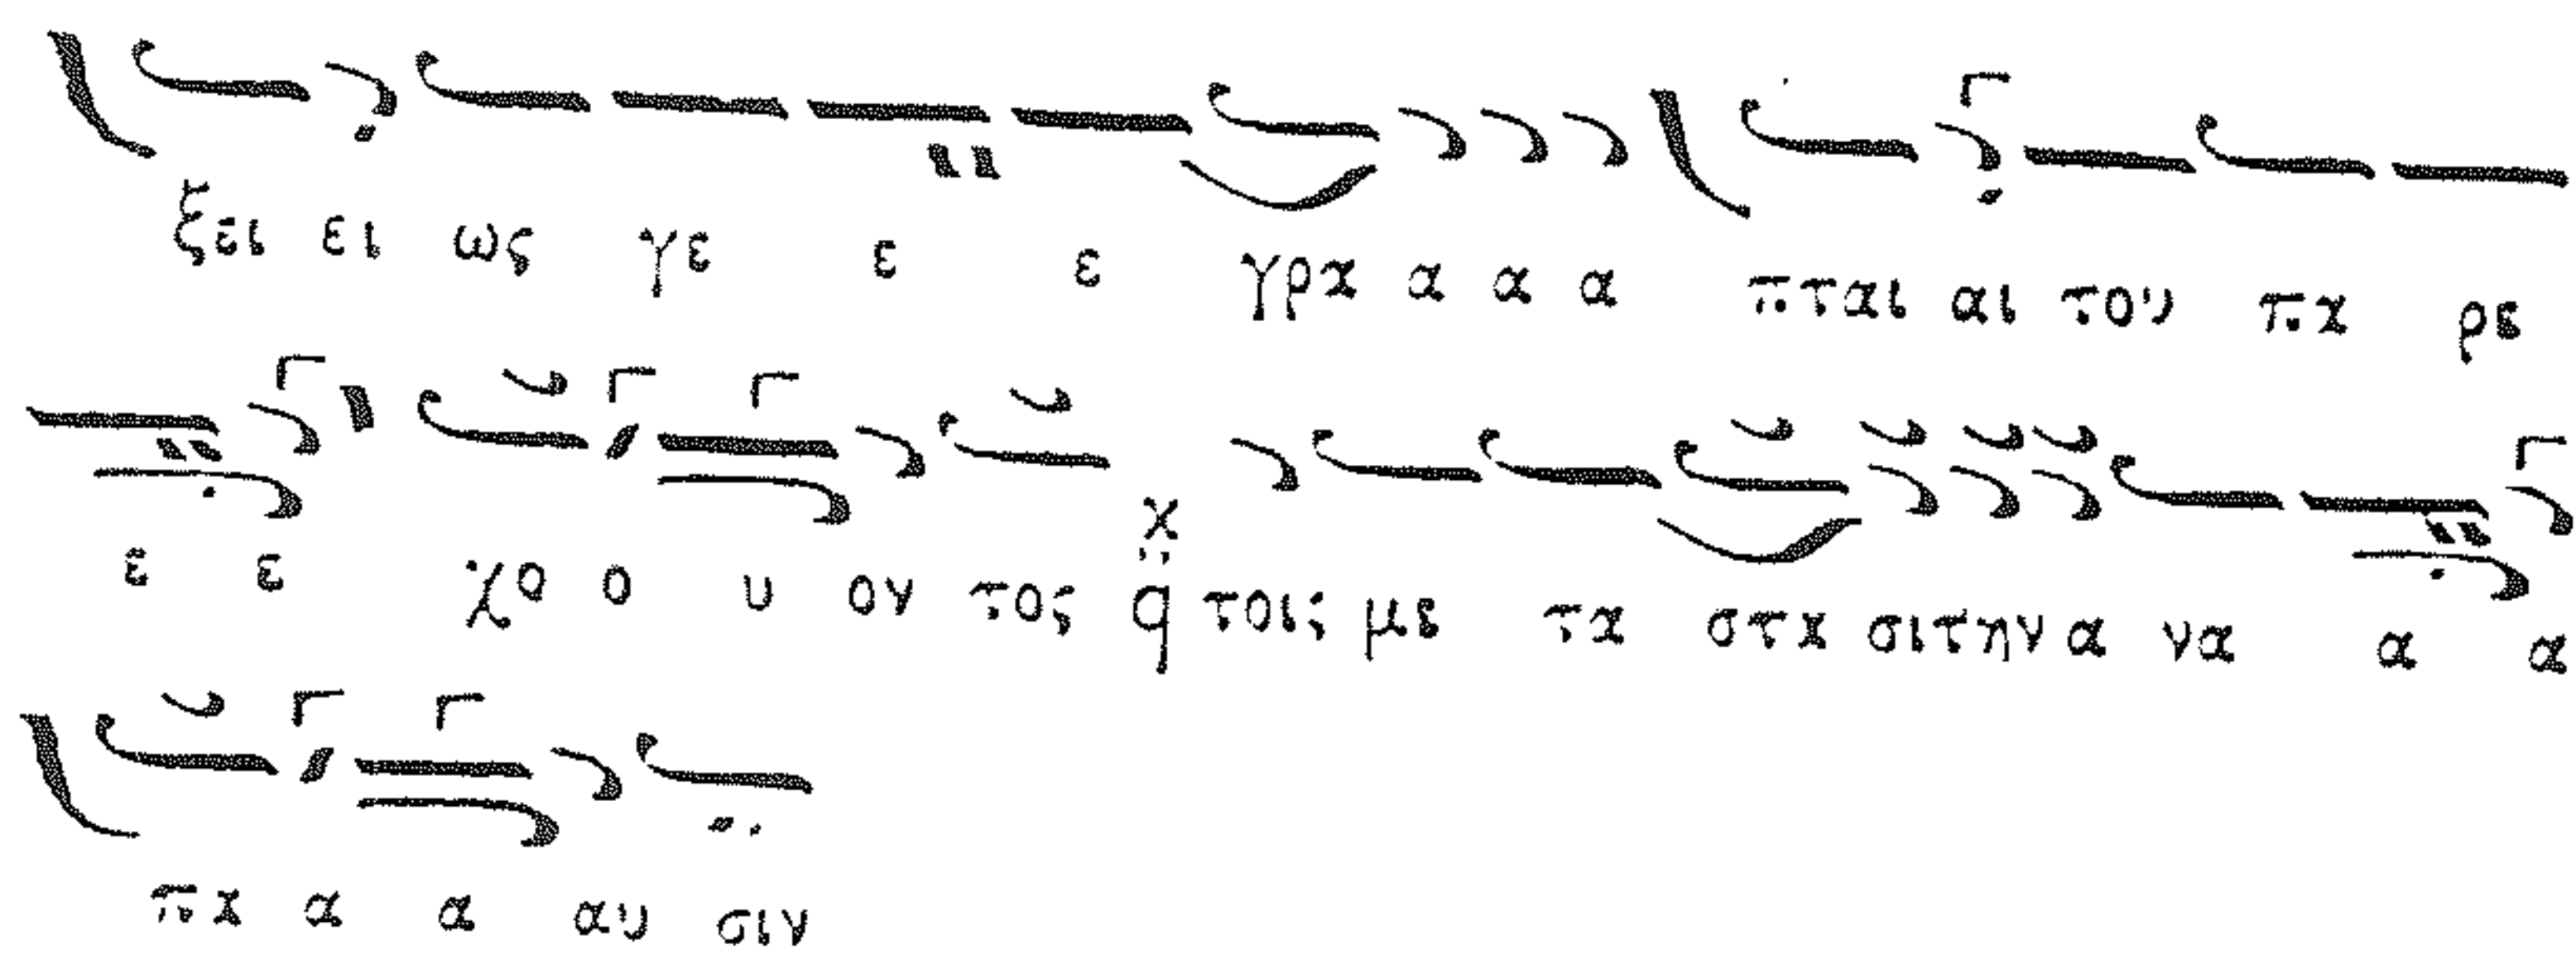 ξει ει ως γε ε ε γρα α α α πται αι του πα ρε
ε ε χο ο ο ον τος q τοις με τα στα σι την α να α α
πα α α αυ σιν